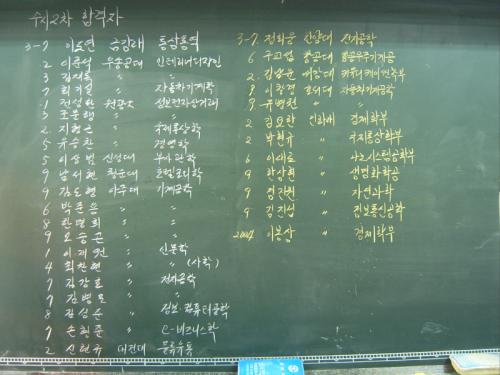 수시2차 합격자
3-7 이 연 금강대 통상통역
2 이윤석 우송공대 인테리어디자인
3 김재독 〃 〃
7 최기설 〃 자동차기계학
1 전성환 원광大 전자상거래
3 조문행 〃 〃
2 지형근 〃 국제통상학
5 유승찬 〃 경영학
5 이상범 신성대 부사관학
9 남서현 청운대 호텔조리학
9 김도형 아주대 기계공학
6 박준흠 〃 〃
8 한범희 〃 〃
9 오승근 〃 〃
1 이재원 〃 인문학
4 최찬현 〃 〃 (사학)
7 김강호 〃 전자공학
7 김병도 〃 〃
8 김성순 〃 정보 컴퓨터공학
7 손형준 〃 e-비즈니스학
2 신현규 대전대 물류유통
3-7. 정화웅 한양대 전자공학
6 구교섭 항공대 항공우주기계공
2 김남순 세종대 컴퓨터
8 이창경 호서대 자동차기계공학
9 유병천 〃 〃
2 김요한 인하大 경제학부
2 박현규 〃 국제통상학부
6 이대로 〃 나노시스템공학부
9 한상현 〃 생명화학공
9 정간원 〃 자연과학
9 김진섭 〃 정보통신공학
2004 이봉상 〃 경제학부